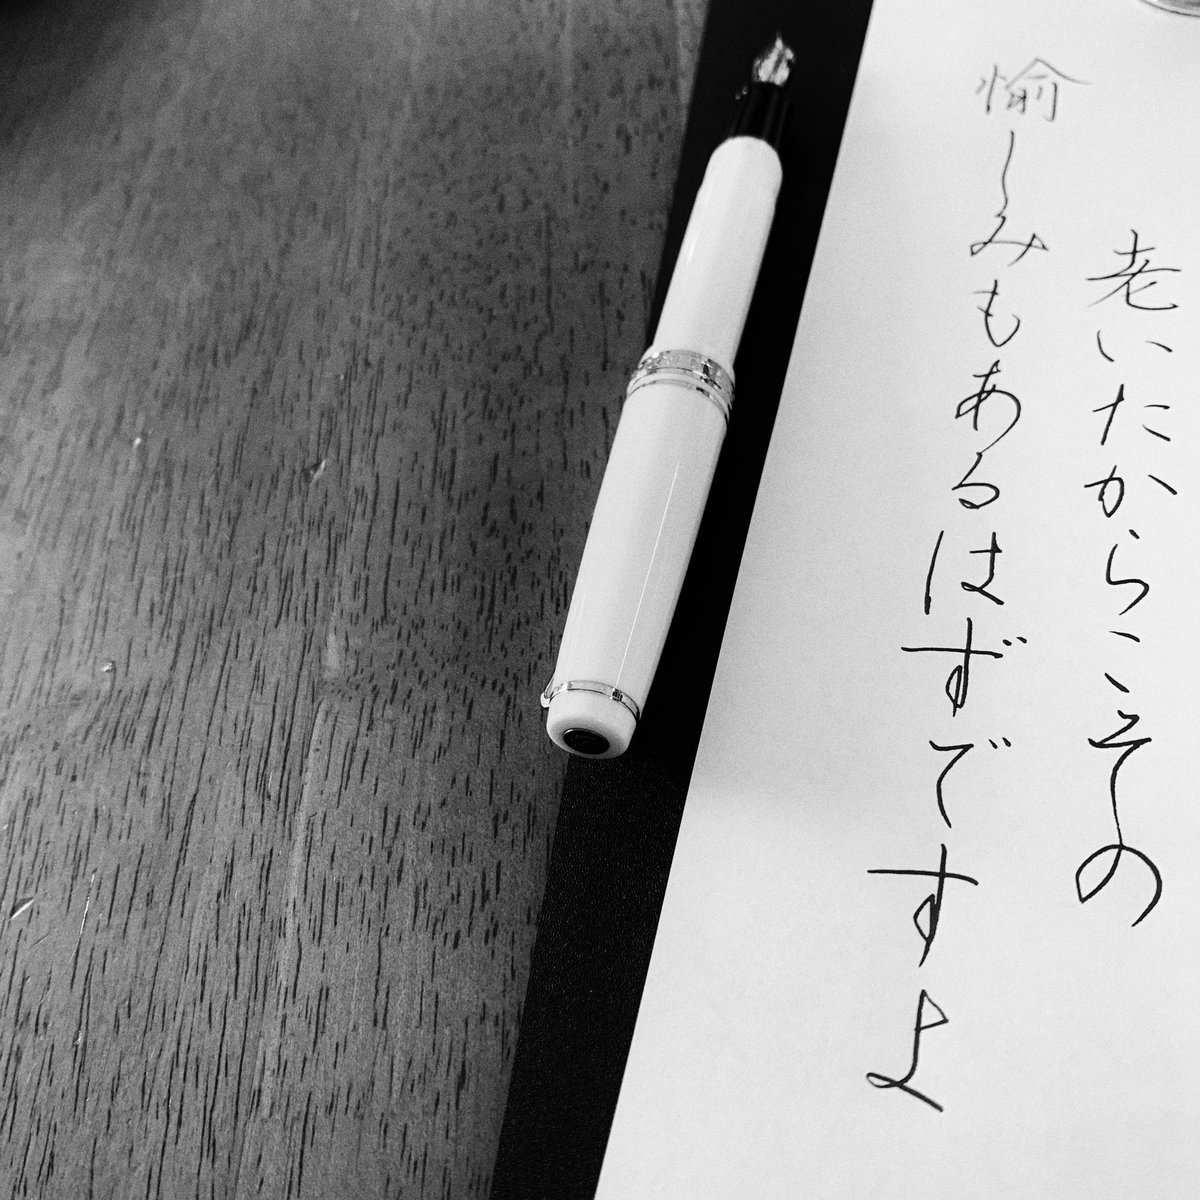 老いたからこその
愉しみもあるはずですよ